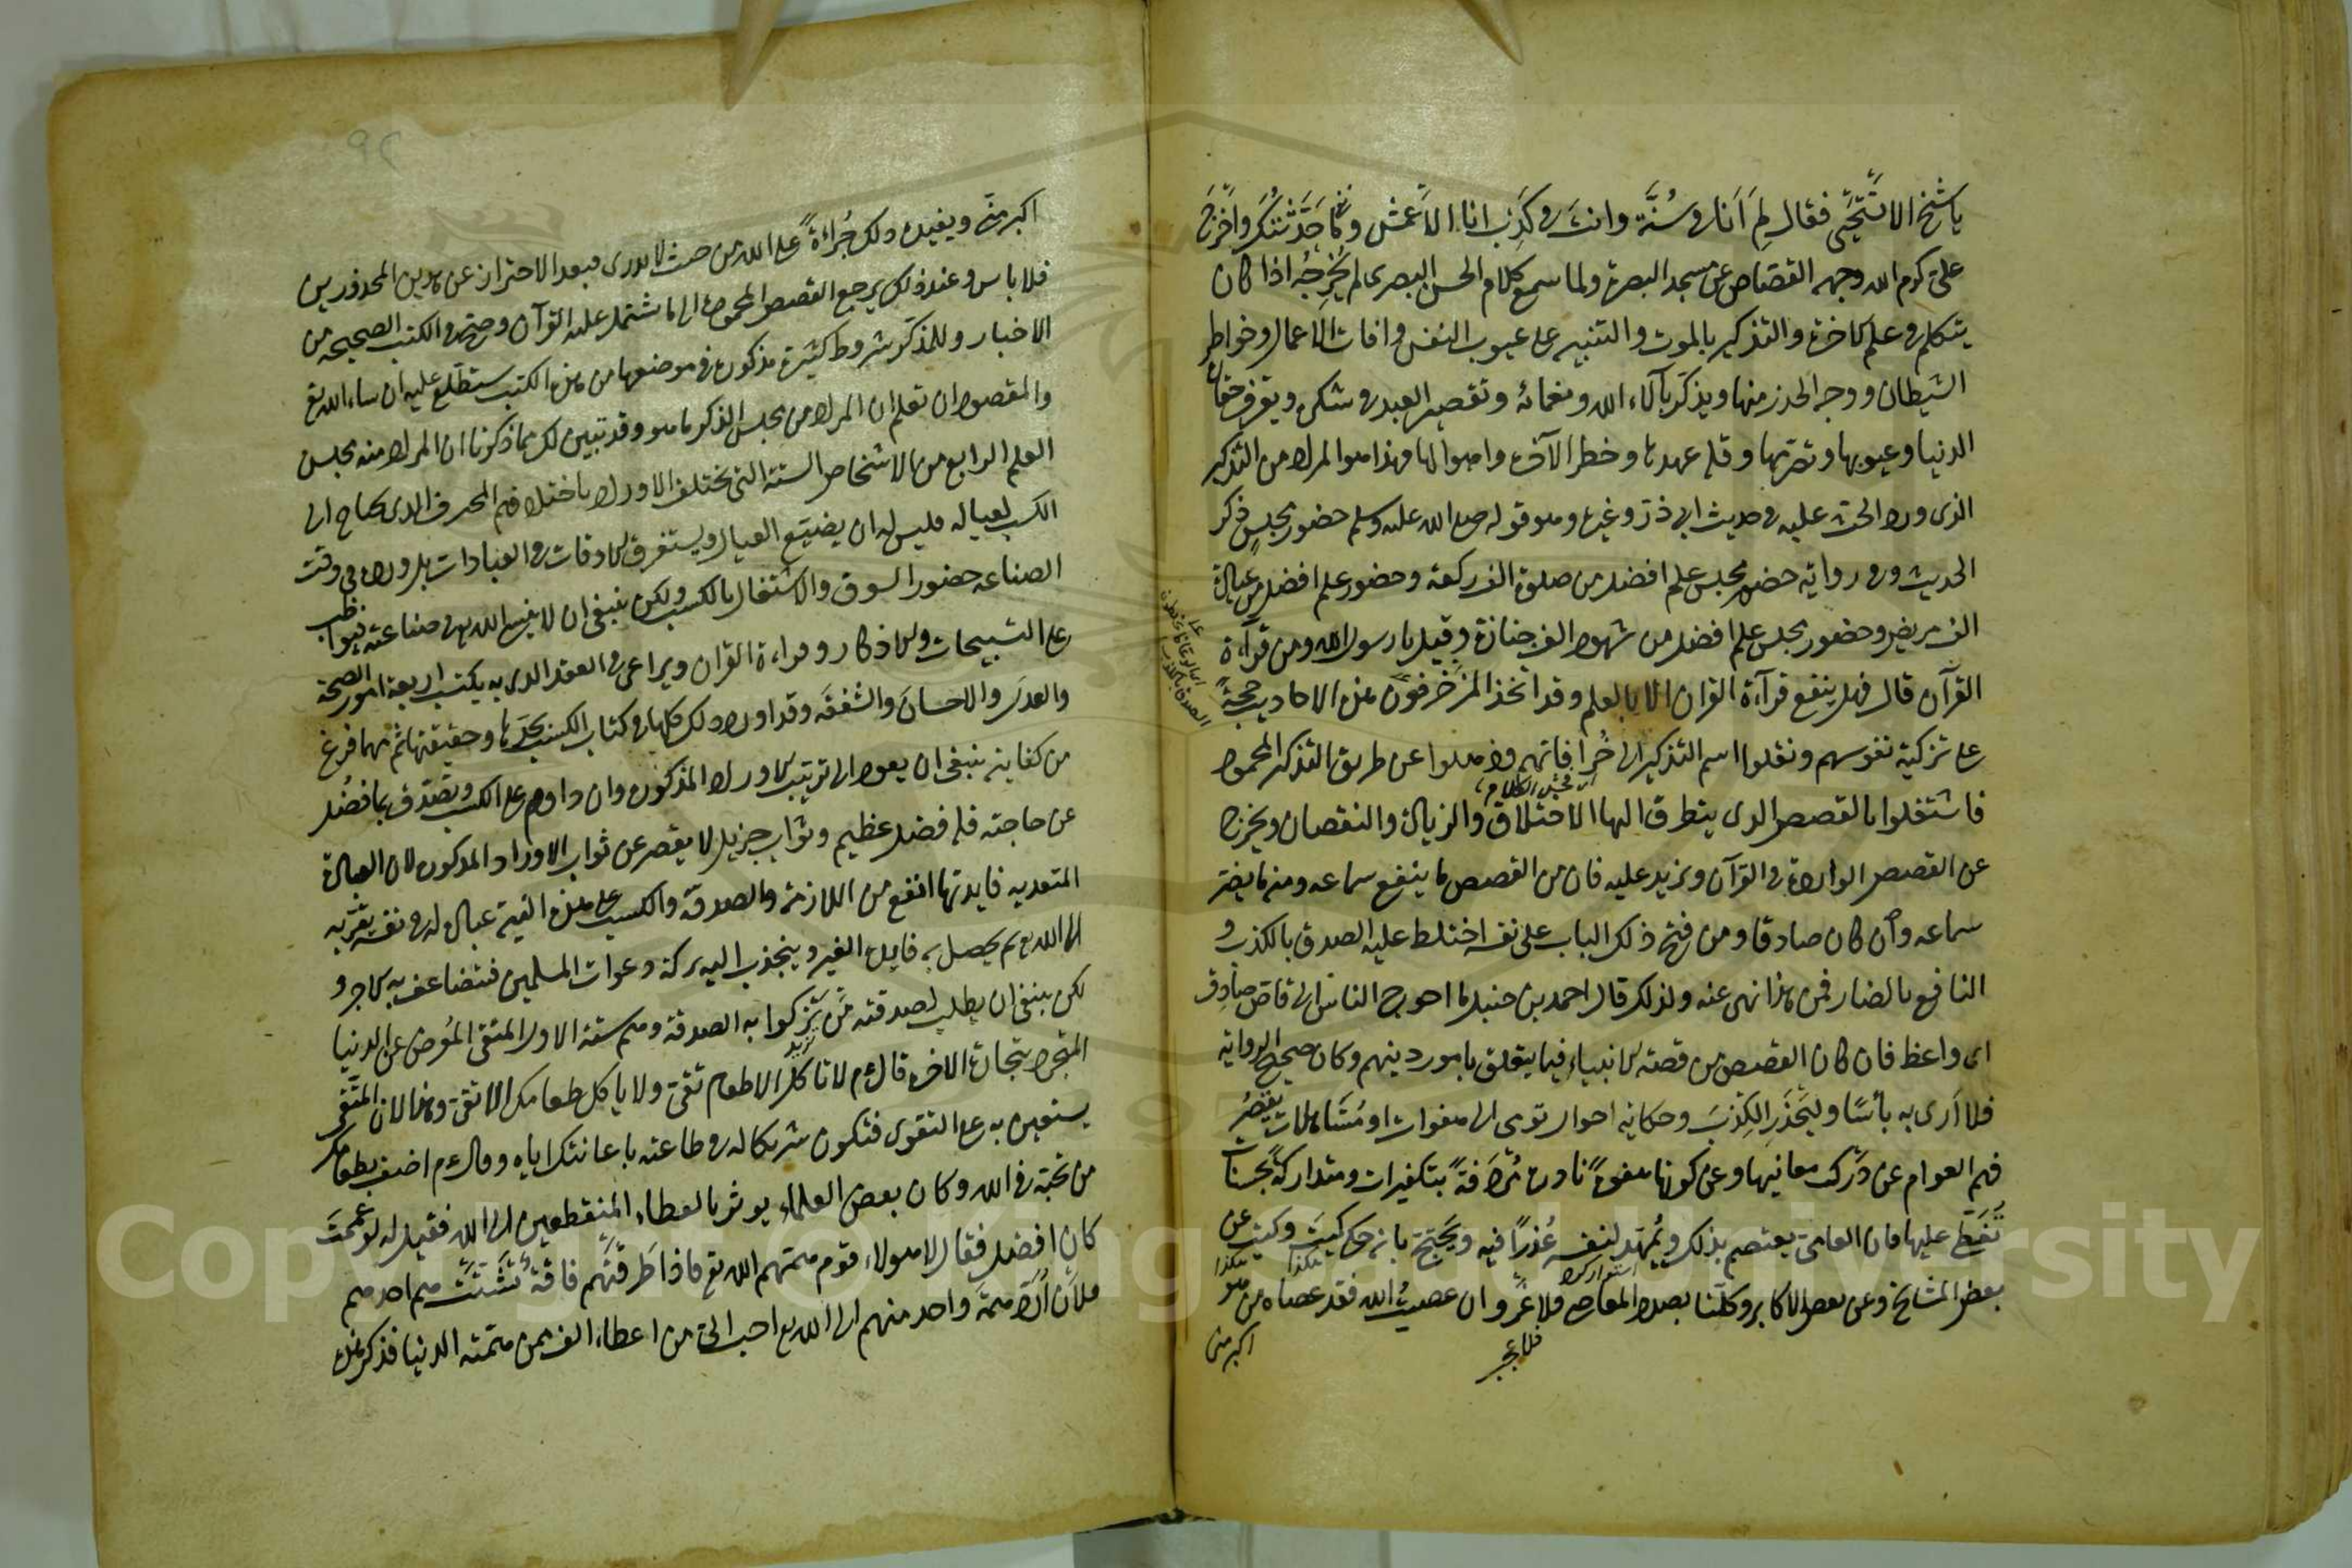 يا شيخ الا تستحيى فقال لم انا فى سنة وانت فى كذب انا الاعمش وما حدثتك واخرج
على كرم الله وجهه القصاص عن مسجد البصرة ولما سمع كلام الحسن البصرى لم يخرجه اذا كان
يتكلم فى علم الاخرة والتذكير بالموت والتنبيه على عيوب النفس وافات الاعمال وخواطر
الشيطان ووجه الحذر منها ويذكر بآلاء الله ونعمائه وتقصير العبد فى شكره ويعرف حقارة
الدنيا وعيوبها وتصرمها وقلة عهدها وخطر الآخرة واهوالها فهذا هو المراد من التذكير
الذى ورد الحث عليه فى حديث ابى ذر وغيره وهو قوله صلى الله عليه وسلم حضور مجلس ذكر
الحديث وفى رواية حضور مجلس علم افضل من صلوة الف ركعة وحضور علم افضل من عيادة
الف مريض وحضور مجلس علم افضل من شهود الف جنازة وقيل يا رسول الله ومن قراءة
القرآن قال فهل ينفع قرآءة القران الا بالعلم وقد اتخذ المزخرفون هذه الاحاديث حجة
على تزكية نفوسهم ونقلوا اسم التذكير الى خرافاتهم وذهلوا عن طريق التذكير المحمود
فاشتغلوا بالقصص الذى يتطرق اليها الاختلاق والزيادة والنقصان ويخرج
عن القصص الواردة فى القرآن ويزيد عليه فان من القصص ما ينفع سماعه ومنه ما يضر
سماعه وان كان صادقا ومن فتح ذلك الباب على نفسه اختلط عليه الصدق بالكذب و
النافع بالضار فمن هذا نهى عنه ولذلك قال احمد بن حنبل ما احوج الناس الى قاص صادق
اى واعظ فان كان القصص من قصة الانبياء فيما يتعلق بامور دينهم وكان صحيح الرواية
فلا ارى به بأسا وليحذر الكذب وحكاية احوال تومى الى هفوات او مساهلات يقصر
فهم العوام عن درك معانيها وعن كونها هفوة نادرة مردفة بتكفيرات ومتداركة بحسنات
تغطى عليها فان العامى يعتصم بذلك ويمهد لنفسه عذرا فيه ويحتج بانه حكى كيت وكيت عن
بعض المشايخ وعن بعض الاكابر وكلنا بصدد المعاصى فلا غرو ان عصيت الله فقد عصاه من هو
اكبر منى
فلا عجب
اكبر منى ويفيده ذلك جراءة على الله من حيث لا يدرى فبعد الاحتراز عن هذين المحذورين
فلا باس وعند ذلك يرجع القصص المحمودة الى ما يشتمل عليه القرآن وصح فى الكتب الصحيحه من
الاخبار وللمذكر شروط كثيرة مذكورة فى موضعها من هذه الكتب ستطلع عليه ان شاء الله تع
والمقصود ان تعلم ان المراد من مجلس الذكر ما هو وقد تبين لك بما ذكرنا ان المراد منه مجلس
العلم الرابع من الاشخاص الستة التى يختلف الاوراد باختلافهم المحترف الذى يحتاج الى
الكسب لعياله فليس له ان يضيع العيال ويستغرق الاوقات فى العبادات بل ورده فى وقت
الصناعه حضور السوق والاشتغال بالكسب ولكن ينبغى ان لا ينسى الله تع فى صناعته فيواظب
على التسبيحات والاذكار وقراءة القران ويراعى فى العقد الذى به يكتسب اربعة امور الصحة
والعدل والاحسان والشفقه وقد اورد ذلك كلها فى كتاب الكسب بحدها وحقيقتها ثم مهما فرغ
من كفايته ينبغى ان يعود الى ترتيب الاوراد المذكورة وان داوم على الكسب وتصدق بما فضل
عن حاجته فله فضل عظيم وثواب جزيل لا يقصر عن ثواب الاوراد المذكورة لان العبادة
المتعديه فايدتها انفع من اللازمة والصدقة والكسب على هذه النية عبادة له فى نفسه يقربه
الى الله تع ثم يحصل به فايدة الغير وينجذب اليه بركة دعوات المسلمين فتضاعف به الاجر و
لكن ينبغى ان يطلب لصدقته من تزكوا به الصدقة وهم ستة الاول المتقى المعرض عن الدنيا
المتجرد بتجارة الاخرة قال ع م لا تاكل الا طعام تقى ولا ياكل طعامك الا تقى وهذا لان المتقى
يستعين به على التقوى فتكون شريكا له فى طاعته باعانتك اياه وقال ع م اضف بطعامك
من تحبه فى الله وكان بعض العلماء يوثر بالعطاء المنقطعين الى الله فقيل له لو عممت
كان افضل فقال لا هولاء قوم همتهم الله تع فاذا طرقتهم فاقة تشتت هم احدهم
فلان ارد همة واحد منهم الى الله تع احب الى من اعطاء الف ممن همته الدنيا فذكر هذا